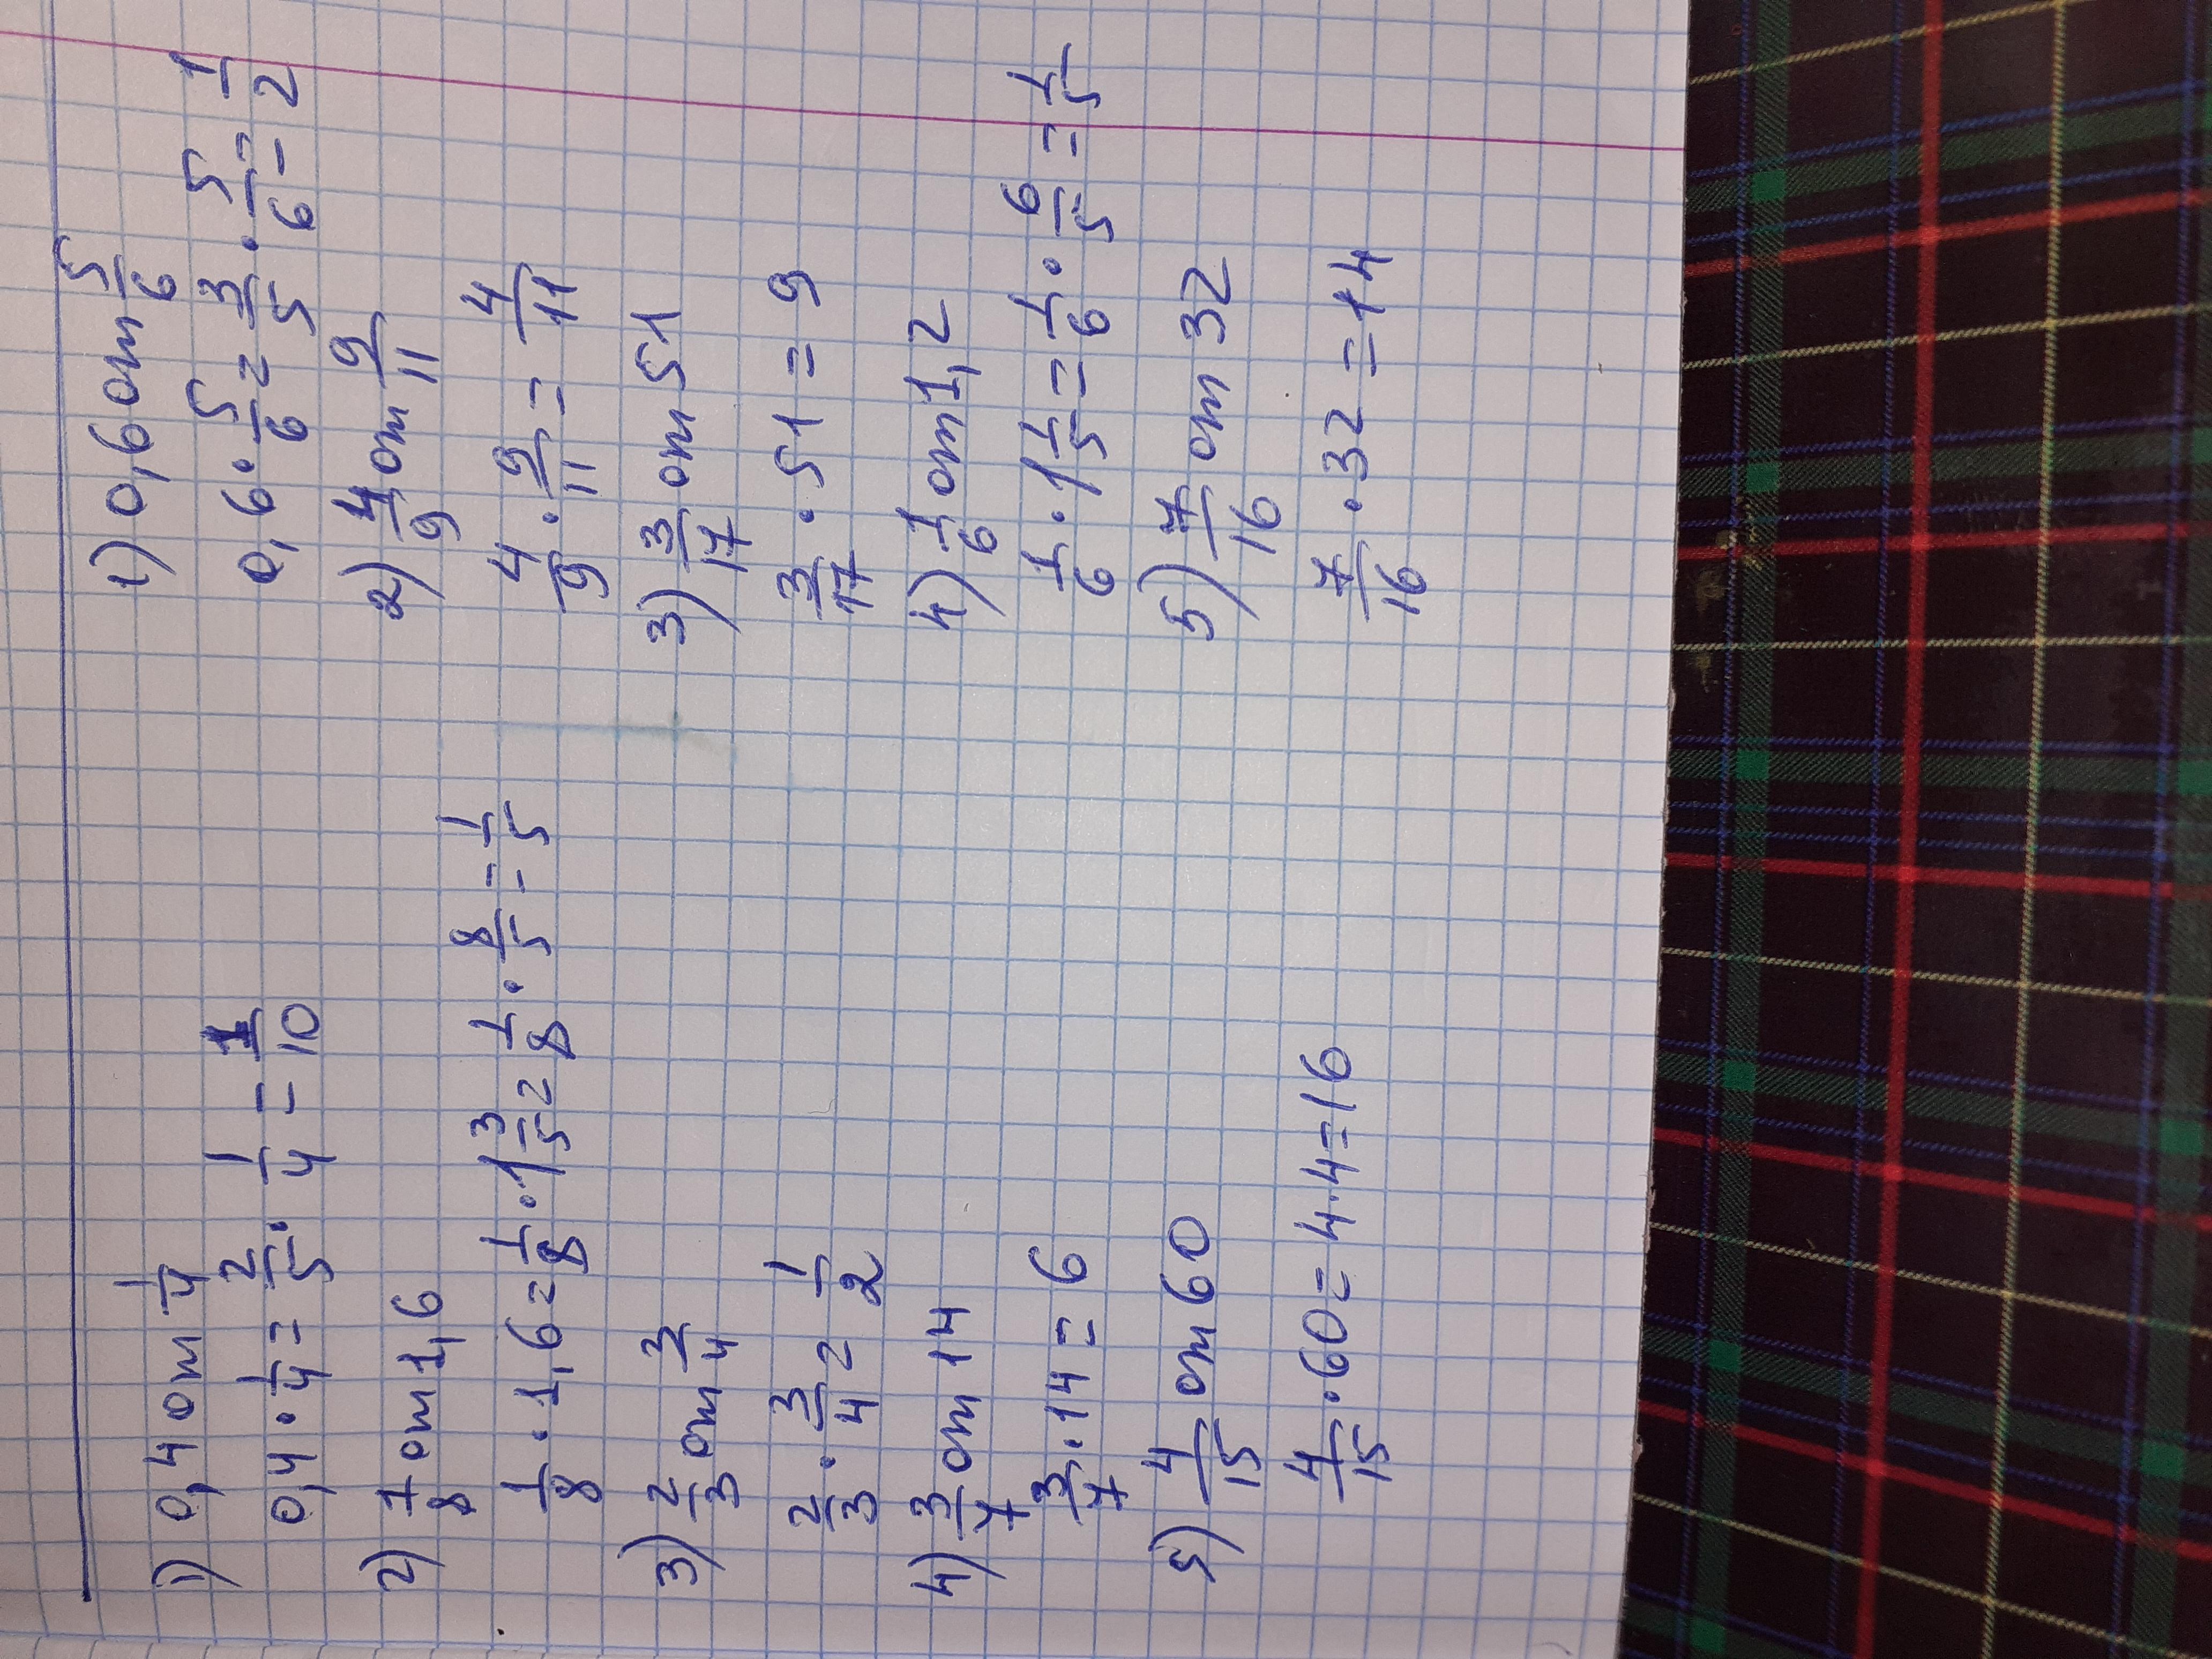 1) 0,4 от 1/4
0,4 · 1/4 = 2/5 · 1/4 = 1/10
2) 1/8 от 1,6
1/8 · 1,6 = 1/8 · 1 3/5 = 1/8 · 8/5 = 1/5
3) 2/3 от 3/4
2/3 · 3/4 = 1/2
4) 3/7 от 14
3/7 · 14 = 6
5) 4/15 от 60
4/15 · 60 = 4 · 4 = 16
1) 0,6 от 5/6
0,6 · 5/6 = 3/5 · 5/6 = 1/2
2) 4/9 от 9/11
4/9 · 9/11 = 4/11
3) 3/17 от 51
3/17 · 51 = 9
4) 1/6 от 1,2
1/6 · 1 1/5 = 1/6 · 6/5 = 1/5
5) 7/16 от 32
7/16 · 32 = 14